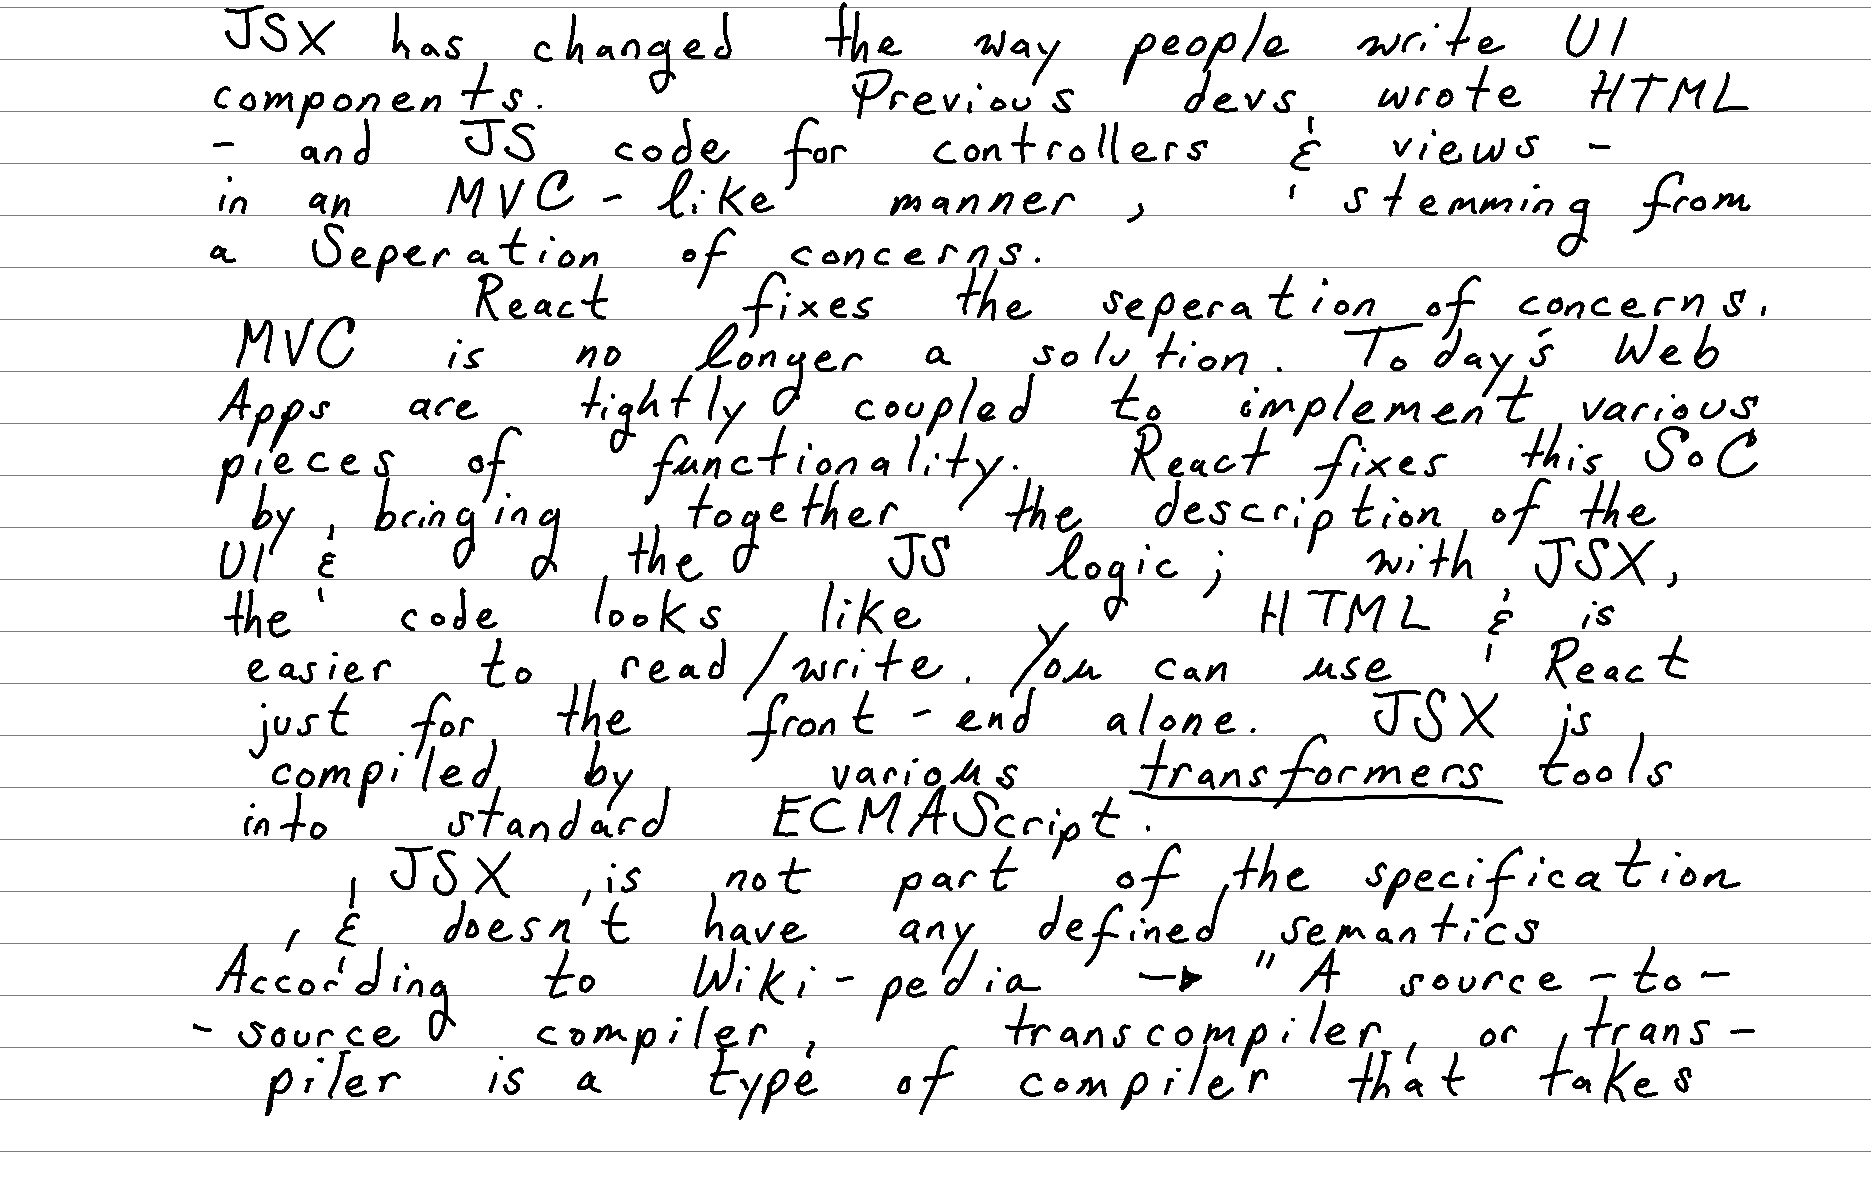 JSX has changed the way people write UI
components. Previous devs wrote HTML
- and JS code for controllers & views -
in an MVC - like manner, stemming from
a Seperation of concerns.
React fixes the seperation of concerns.
MVC is no longer a solution. Today's Web
Apps are tightly coupled to implement various
pieces of functionality. React fixes this SoC
by bringing together the description of the
UI & the JS logic; with JSX,
the code looks like HTML & is
easier to read/write. You can use React
just for the front - end alone. JSX is
compiled by various transformers tools
into standard ECMAScript.
JSX is not part of the specification
& doesn't have any defined semantics
According to Wiki-pedia → "A source-to-
- source compiler, transcompiler, or trans-
piler is a type of compiler that takes